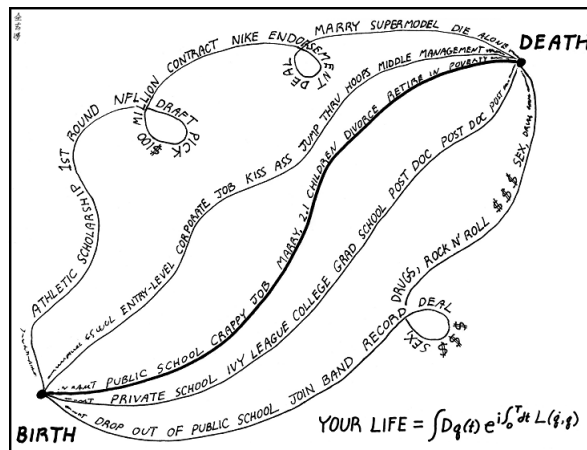 DEATH
ATHLETIC SCHOLARSHIP 1ST ROUND NFL DRAFT PICK $100 MILLION CONTRACT NIKE ENDORSEMENT DEAL MARRY SUPERMODEL DIE ALONE
ENTRY-LEVEL CORPORATE JOB KISS ASS JUMP THRU HOOPS MIDDLE MANAGEMENT
PUBLIC SCHOOL CRAPPY JOB MARRY, 2.1 CHILDREN DIVORCE RETIRE IN POVERTY
PRIVATE SCHOOL IVY LEAGUE COLLEGE GRAD SCHOOL POST DOC POST DOC POST
DROP OUT OF PUBLIC SCHOOL JOIN BAND RECORD DEAL $ $ $ SEX, DRUGS, ROCK N' ROLL $ $ $ SEX, DRUGS
BIRTH
YOUR LIFE = ∫Dq(t) e^{i∫₀ᵀdt L(q̇,q)}